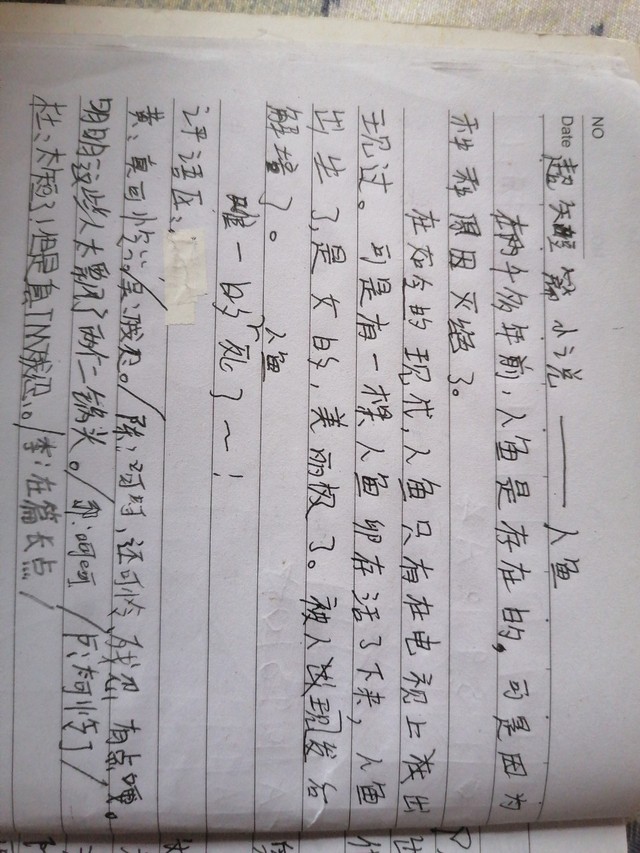 NO
Date
超短篇小说——人鱼
在两千多年前,人鱼是存在的,可是因为
种种原因灭绝了。
在如今的现代,人鱼只有在电视上演出
现过。可是有一棵人鱼卵存活了下来,人鱼
出生了,是女的,美丽极了。被人类现发后
解堷了。
唯一的人鱼死了~!
评语区:
黄:真可怜,残忍。/陈:对对,还可怜,残忍,有点哽。
明明这些人太
锅头。/郭:呵呵/
:太可怜了/
杜:太短了!但是真TM残忍。/李:在篇长点……/